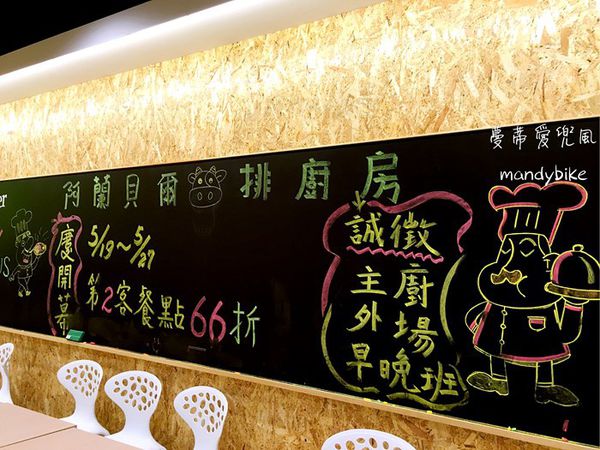 阿蘭貝爾 排廚房
慶開幕
5/19～5/27
第2客餐點66折
誠徵
主廚
外場
早晚班
曼蒂愛兜風
mandybike
er
US